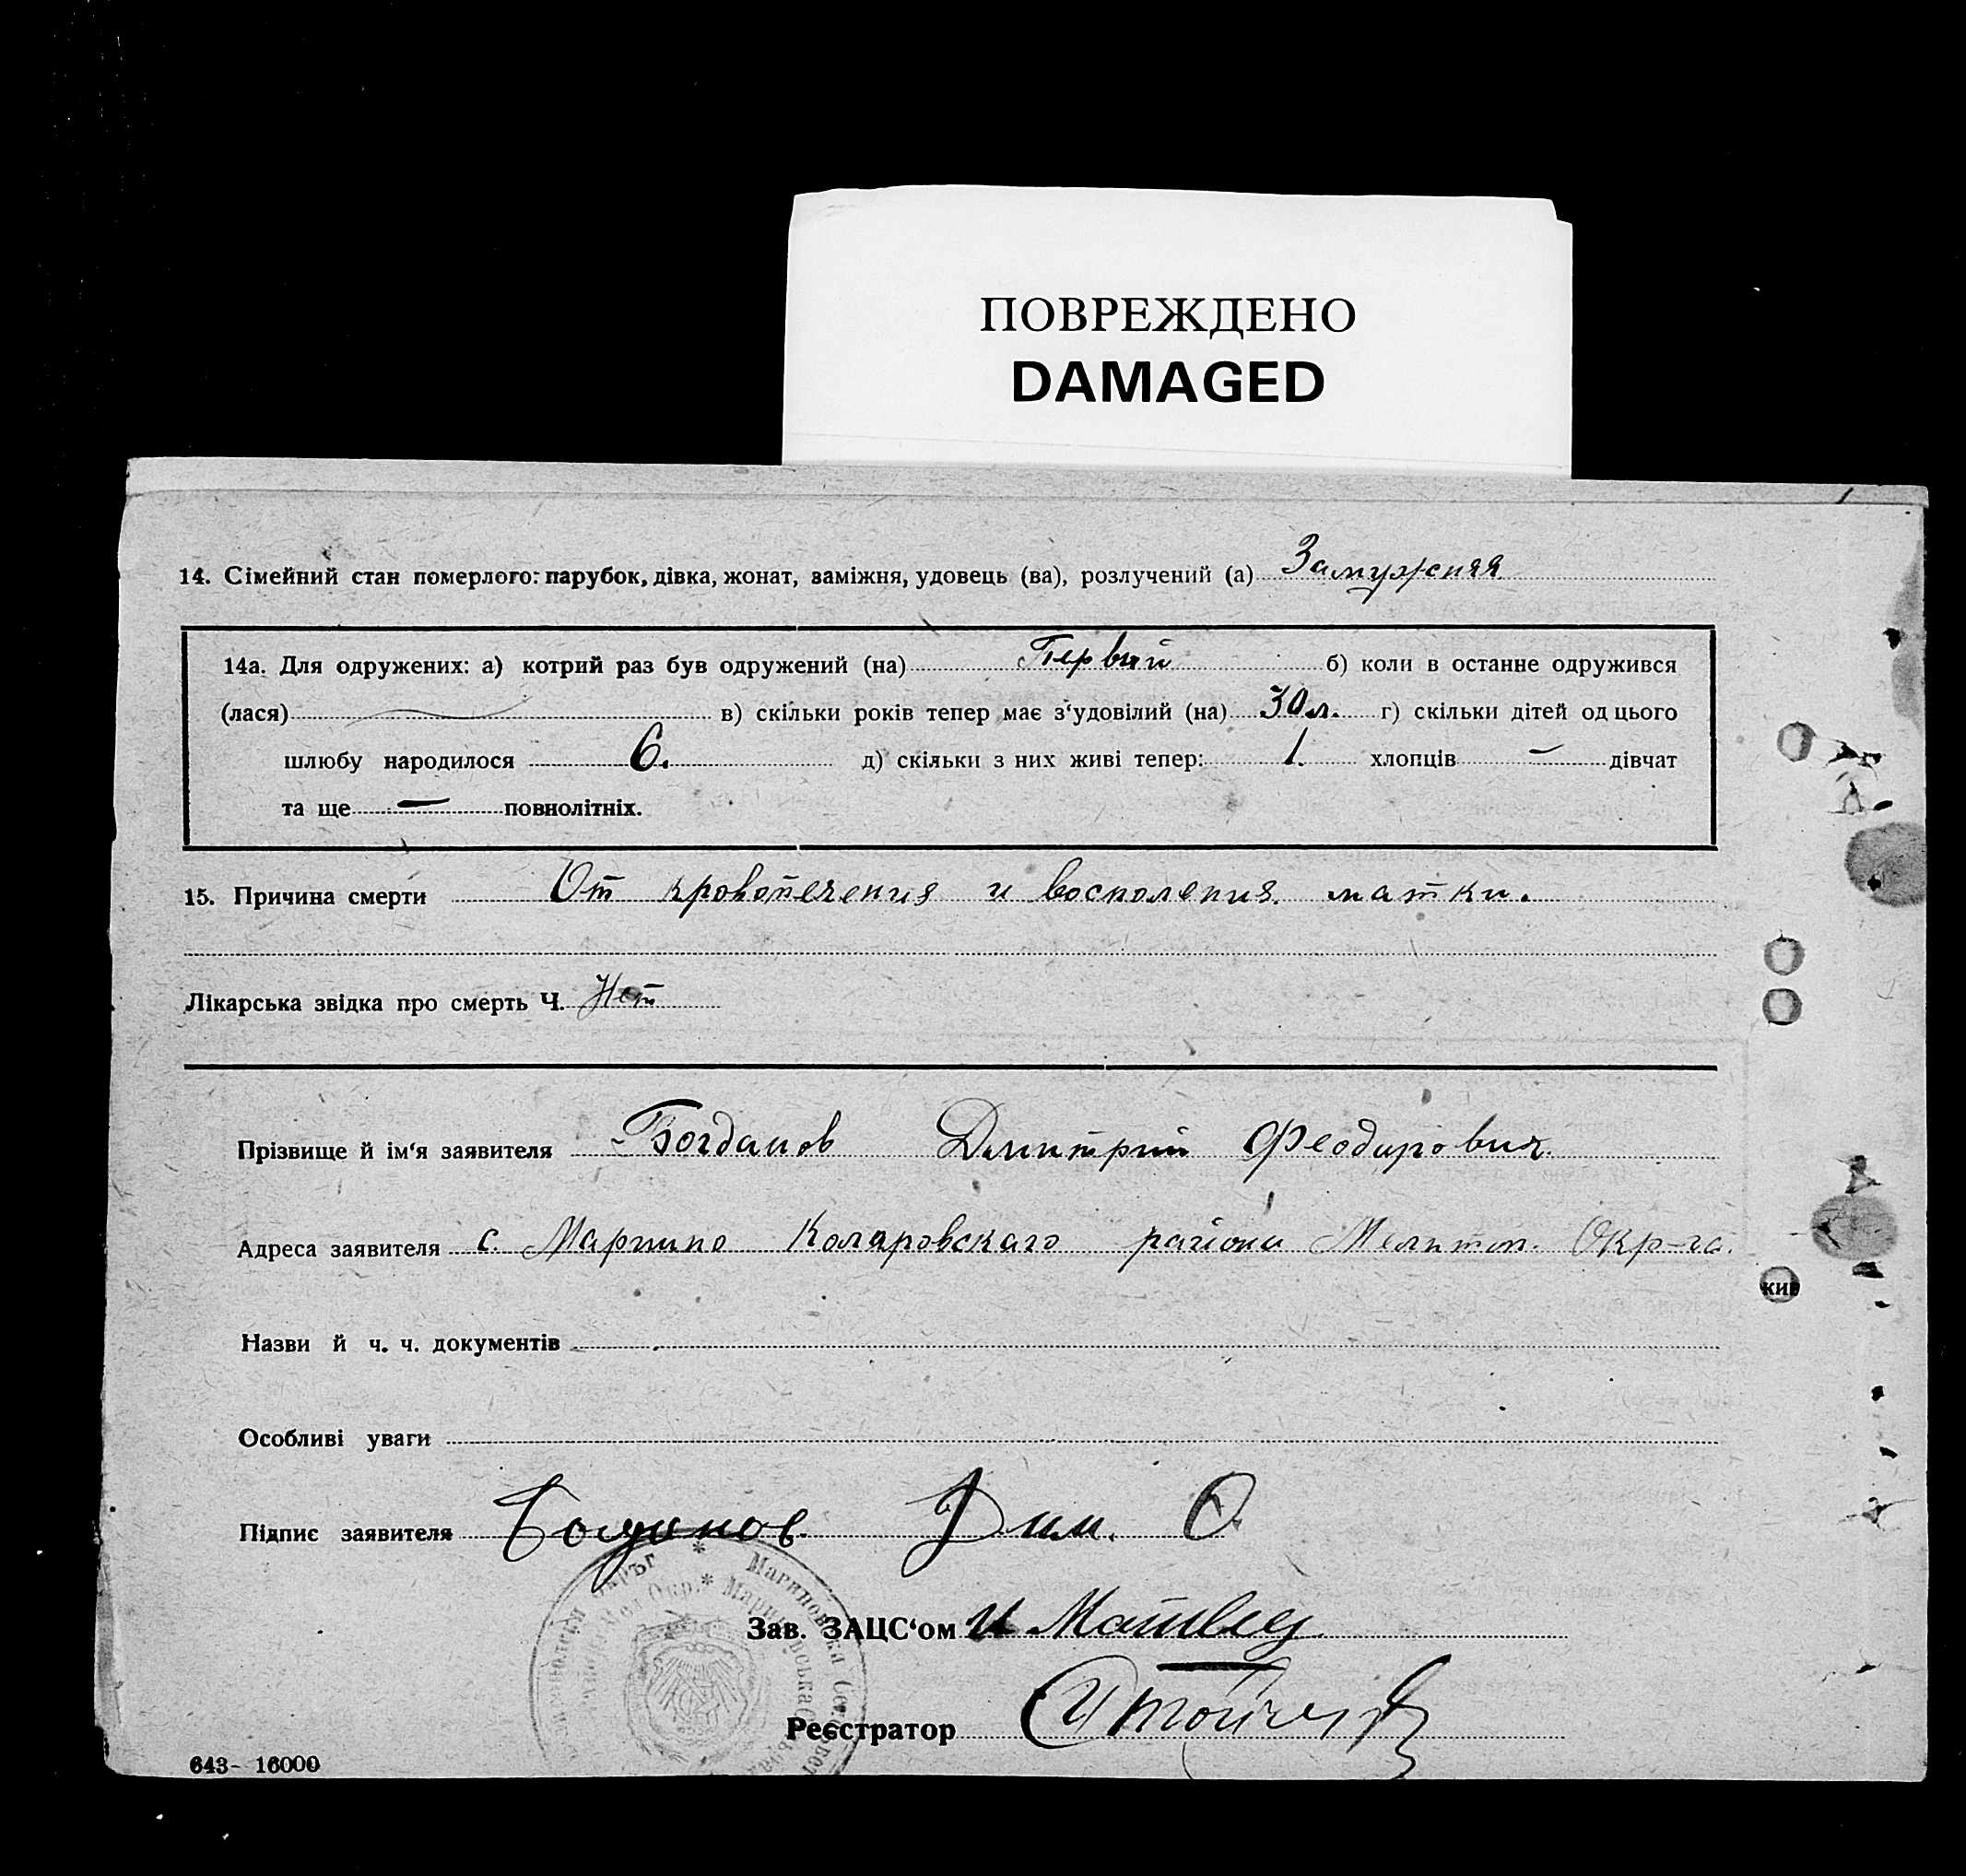 ПОВРЕЖДЕНО
DAMAGED
14. Сімейний стан померлого: парубок, дівка, жонат, заміжня, удовець (ва), розлучений (а) Замужняя
14а. Для одружених: а) котрий раз був одружений (на) Первый б) коли в останне одружився
(лася) в) скільки років тепер має з'удовілий (на) 30 л. г) скільки дітей од цього
шлюбу народилося 6. д) скільки з них живі тепер: 1. хлопців — дівчат
та ще — повнолітніх.
15. Причина смерти От кровотечения и восполения матки.
Лікарська звідка про смерть Ч. Нет
Прізвище й ім'я заявителя Богданов Дмитрий Феодорович.
Адреса заявителя с. Марино Коларовскаго района Мелитоп. Окр-га.
кив
Назви й ч. ч. документів
Особливі уваги
Підпис заявителя Богданов Дим. Ф.
Зав. ЗАЦС'ом
Реєстратор
643- 16000